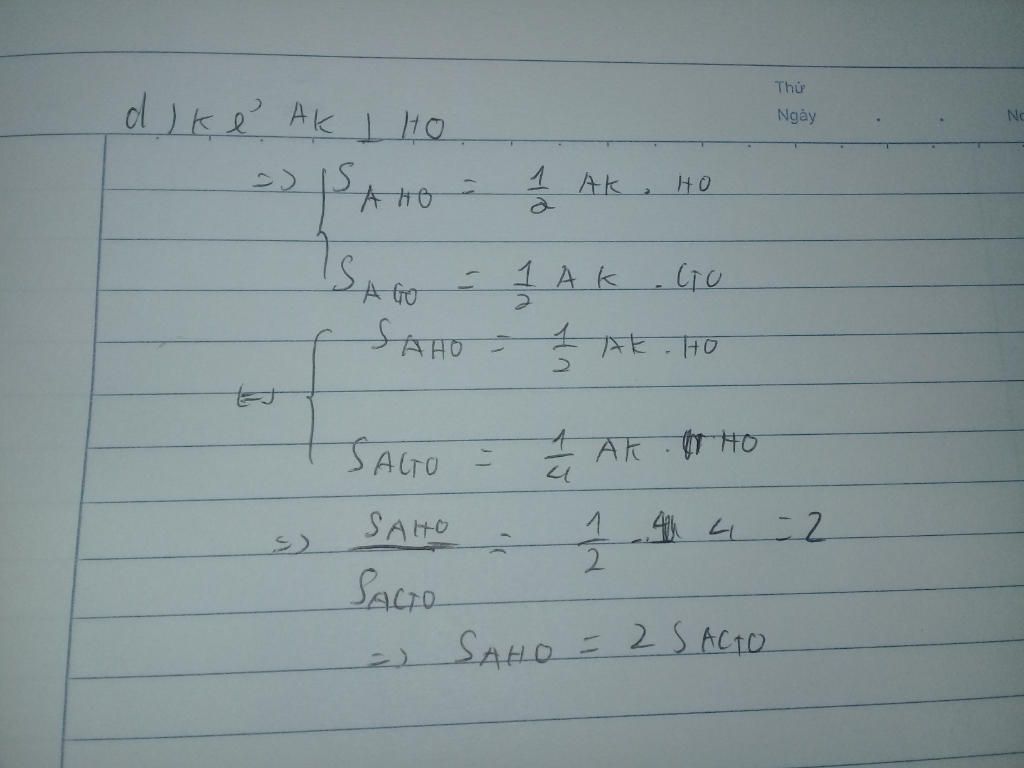 Thứ
Ngày
d) Kẻ AK ⊥ HO
=> { S AHO = 1/2 AK . HO
S AGO = 1/2 AK . GO
<=> { S AHO = 1/2 AK . HO
S AGO = 1/4 AK . HO
=> S AHO / S AGO = 1/2 . 4 = 2
=> S AHO = 2 S AGO